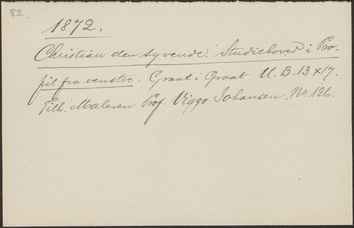 82.
1872.
Christian den syvende. Studiehoved i Pro-
fil fra venstre. Graat i Graat U. B. 13 x 17.
Tilh. Maleren Prof. Viggo Johansen. Nr. 126.